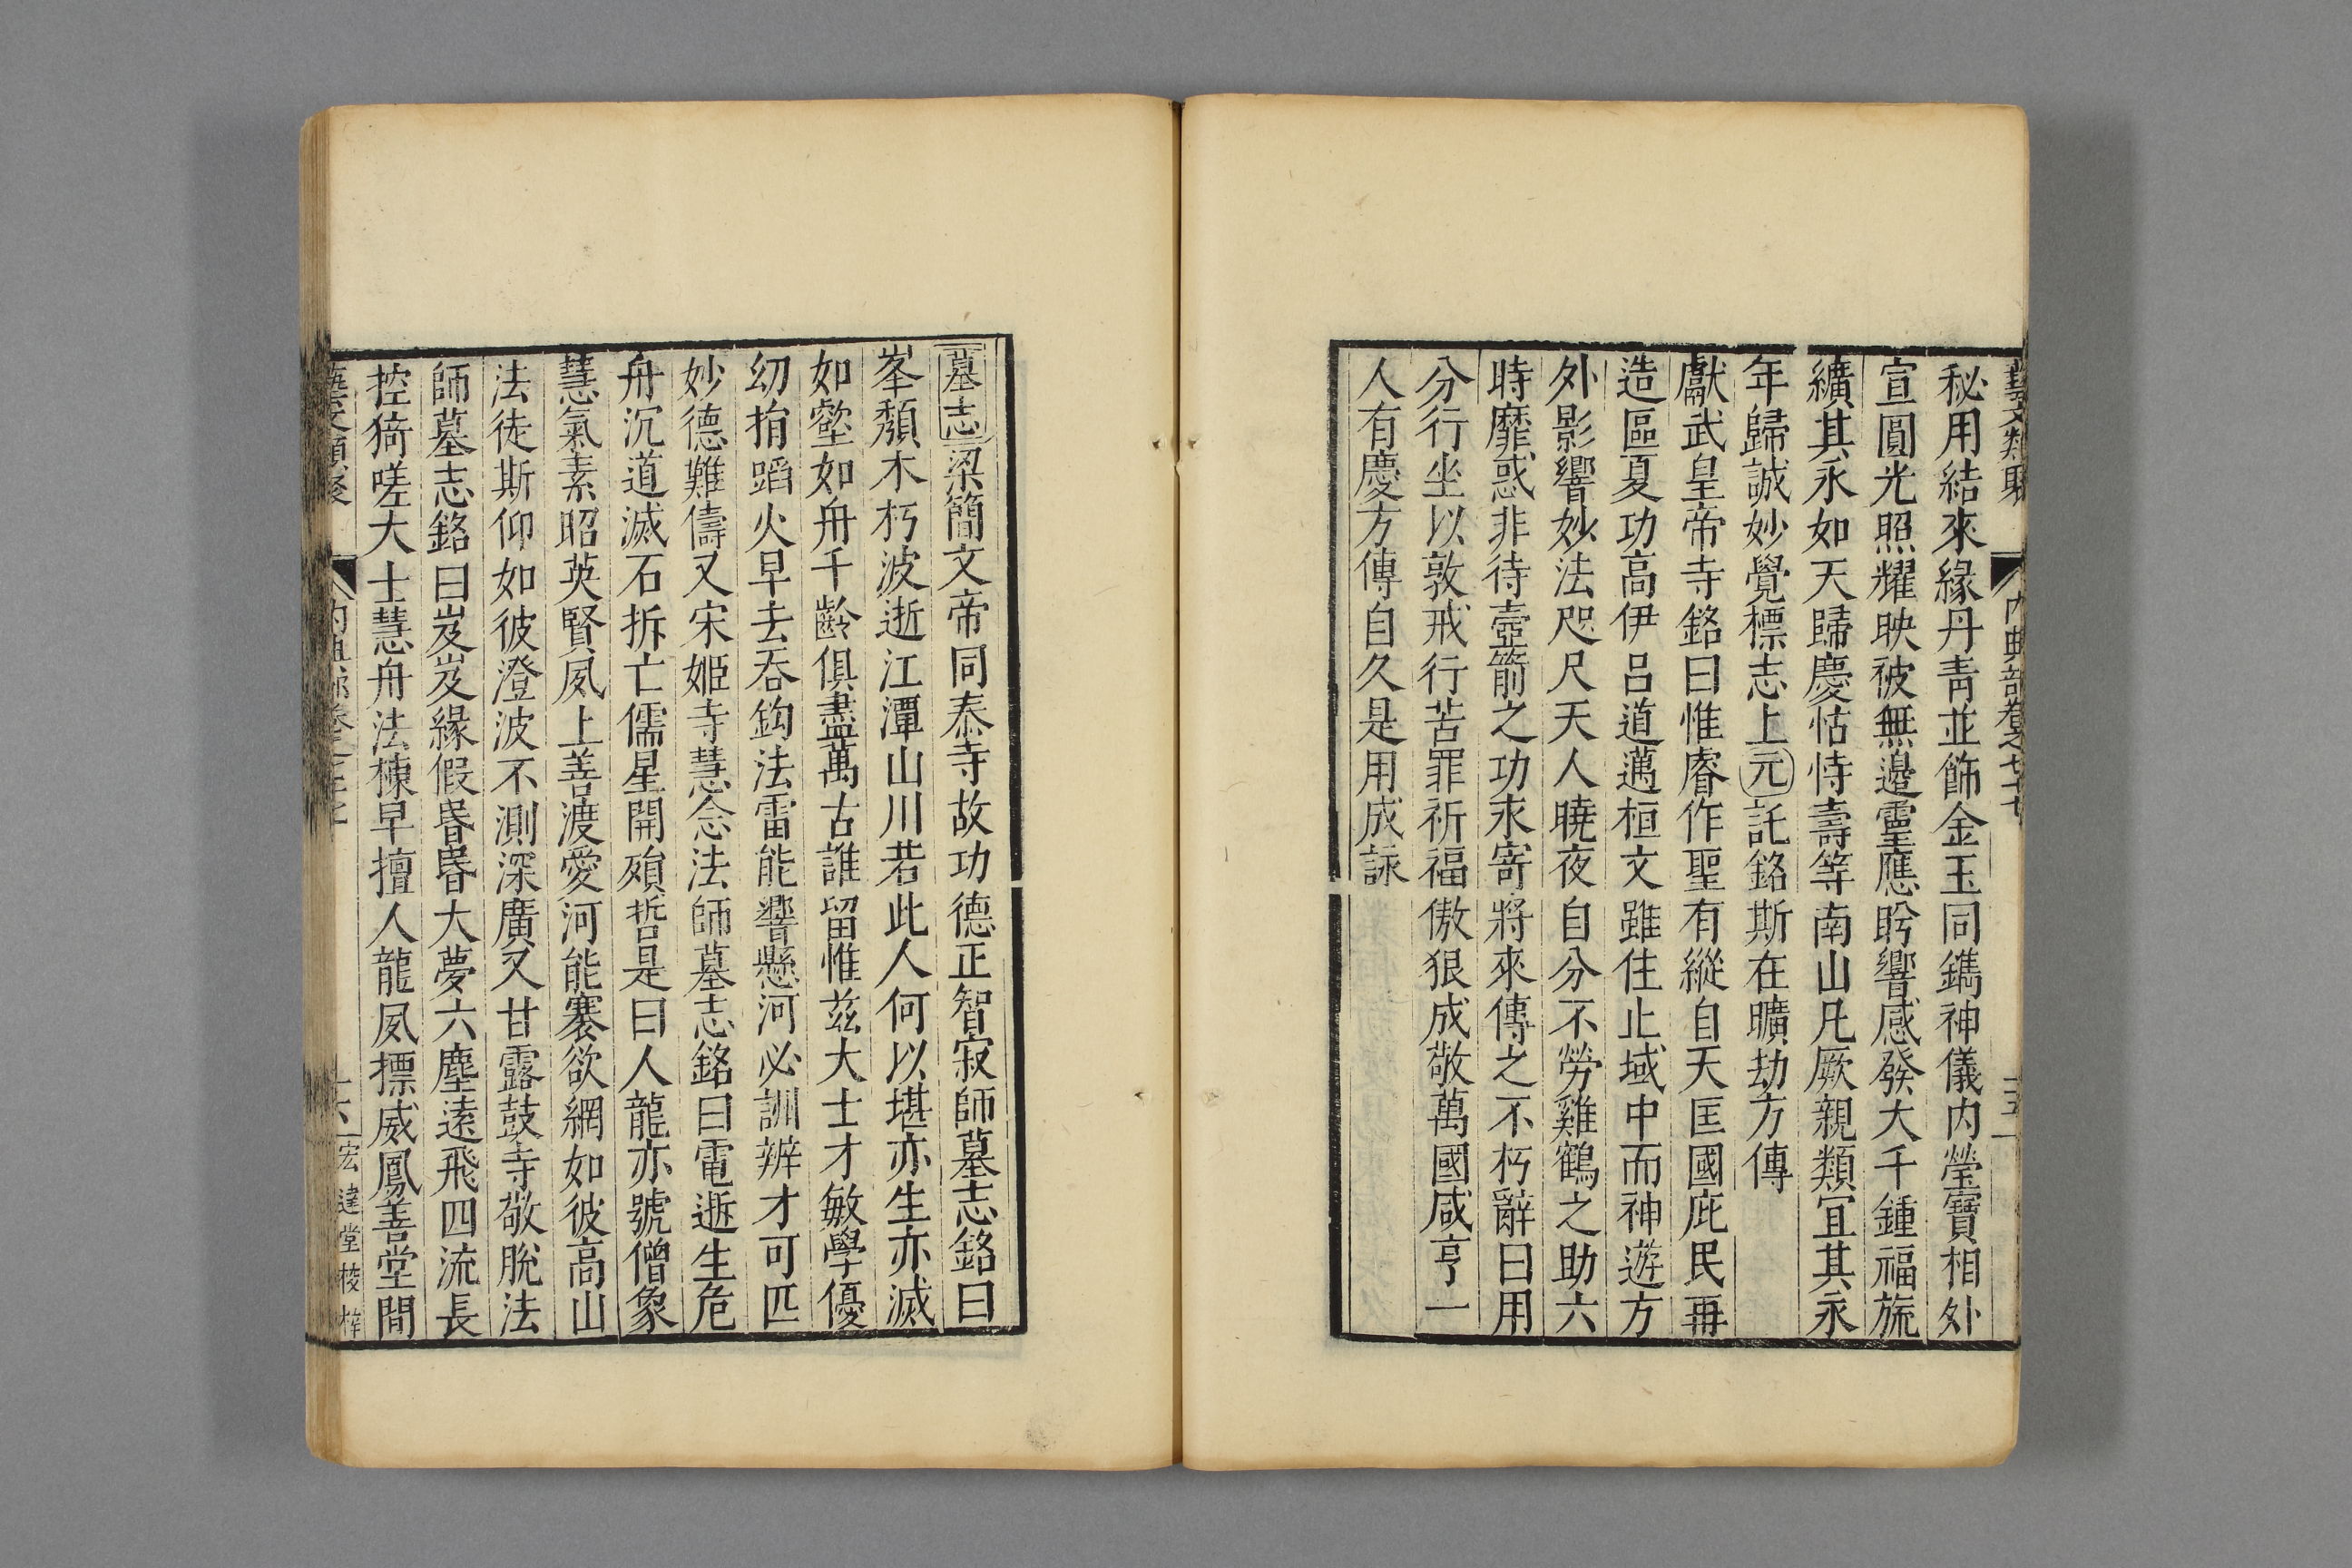 藝文類聚 內典部卷之七十七 十五
秘用結來緣丹青並飾金玉同鐫神儀内瑩寶相外
宣圓光照耀映被無邊靈應盻響感發大千鍾福旒
纊其永如天歸慶怙恃壽等南山凡厥親類宜其永
年歸誠妙覺標志上元託銘斯在曠劫方傳
獻武皇帝寺銘曰惟睿作聖有縱自天匡國庇民再
造區夏功高伊呂道邁桓文雖住止域中而神遊方
外影響妙法咫尺天人曉夜自分不勞雞鶴之助六
時靡惑非待壺箭之功永寄將來傳之不朽辭曰用
分行坐以敦戒行苦罪祈福傲狠成敬萬國咸亨一
人有慶方傳自久是用成詠
墓志梁簡文帝同泰寺故功德正智寂師墓志銘曰
峯頹木朽波逝江潭山川若此人何以堪亦生亦滅
如壑如舟千齡俱盡萬古誰留惟兹大士才敏學優
幼捐蹈火早去吞鈎法雷能響懸河必訓辨才可匹
妙德難儔又宋姬寺慧念法師墓志銘曰電逝生危
舟沉道滅石拆亡儒星開殞哲是曰人龍亦號僧象
慧氣素昭英賢夙上善渡愛河能褰欲網如彼高山
法徒斯仰如彼澄波不測深廣又甘露鼓寺敬脫法
師墓志銘曰岌岌緣假昬昬大夢六塵遠飛四流長
控猗嗟大士慧舟法棟早擅人龍夙摽威鳳善堂間
藝文類聚 内典部卷之七十七 十六 宏達堂校梓